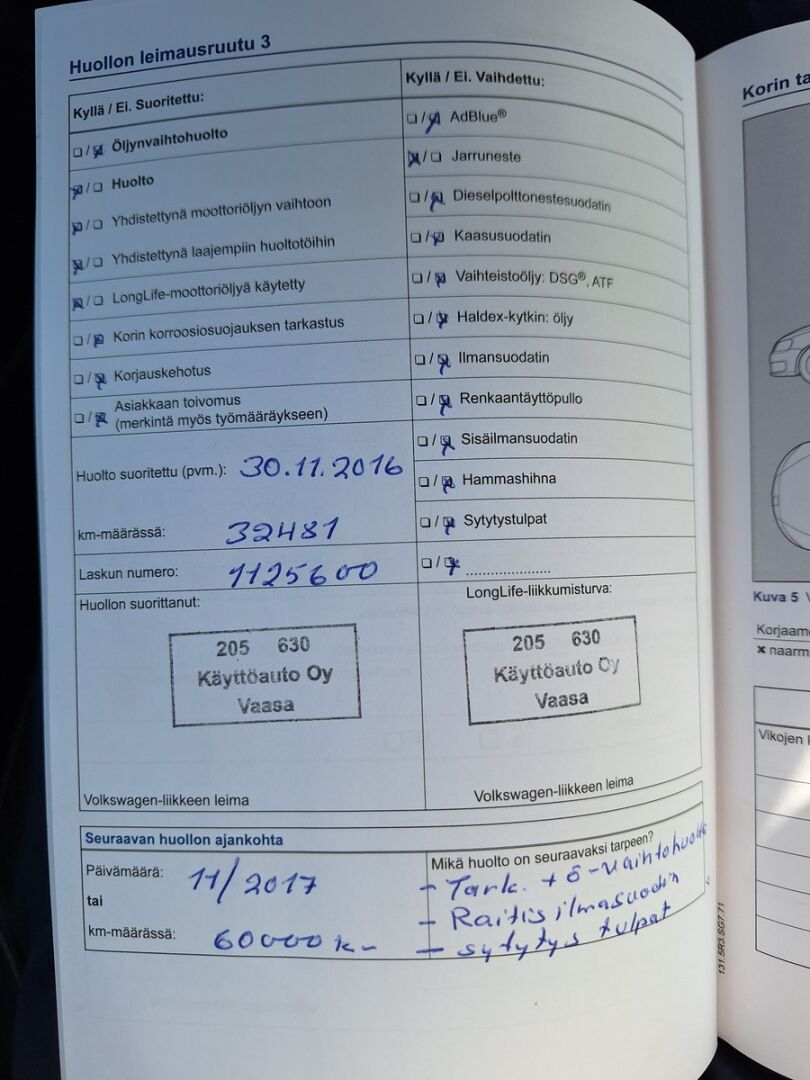 Huollon leimausruutu 3
Kyllä / Ei. Suoritettu:
❏ / ☒ Öljynvaihtohuolto
☒ / ❏ Huolto
☒ / ❏ Yhdistettynä moottoriöljyn vaihtoon
☒ / ❏ Yhdistettynä laajempiin huoltotöihin
☒ / ❏ LongLife-moottoriöljyä käytetty
❏ / ☒ Korin korroosiosuojauksen tarkastus
❏ / ☒ Korjauskehotus
❏ / ☒ Asiakkaan toivomus
(merkintä myös työmääräykseen)
Huolto suoritettu (pvm.): 30.11.2016
km-määrässä: 32481
Laskun numero: 1125600
Huollon suorittanut:
205 630
Käyttöauto Oy
Vaasa
Volkswagen-liikkeen leima
Kyllä / Ei. Vaihdettu:
❏ / ☒ AdBlue®
☒ / ❏ Jarruneste
❏ / ☒ Dieselpolttonestesuodatin
❏ / ☒ Kaasusuodatin
❏ / ☒ Vaihteistoöljy: DSG®, ATF
❏ / ☒ Haldex-kytkin: öljy
❏ / ☒ Ilmansuodatin
❏ / ☒ Renkaantäyttöpullo
❏ / ☒ Sisäilmansuodatin
❏ / ☒ Hammashihna
❏ / ☒ Sytytystulpat
❏ / ☒ .....................
LongLife-liikkumisturva:
205 630
Käyttöauto Oy
Vaasa
Volkswagen-liikkeen leima
Seuraavan huollon ajankohta
Päivämäärä: 11/2017
tai
km-määrässä: 60000 km
Mikä huolto on seuraavaksi tarpeen?
- Tark. + ö-vaihtohuolto
- Raitisilmasuodin
- sytytys tulpat
131.5R3.SG7.71
Korin ta
Kuva 5 V
Korjaamo
✖ naarm
Vikojen k